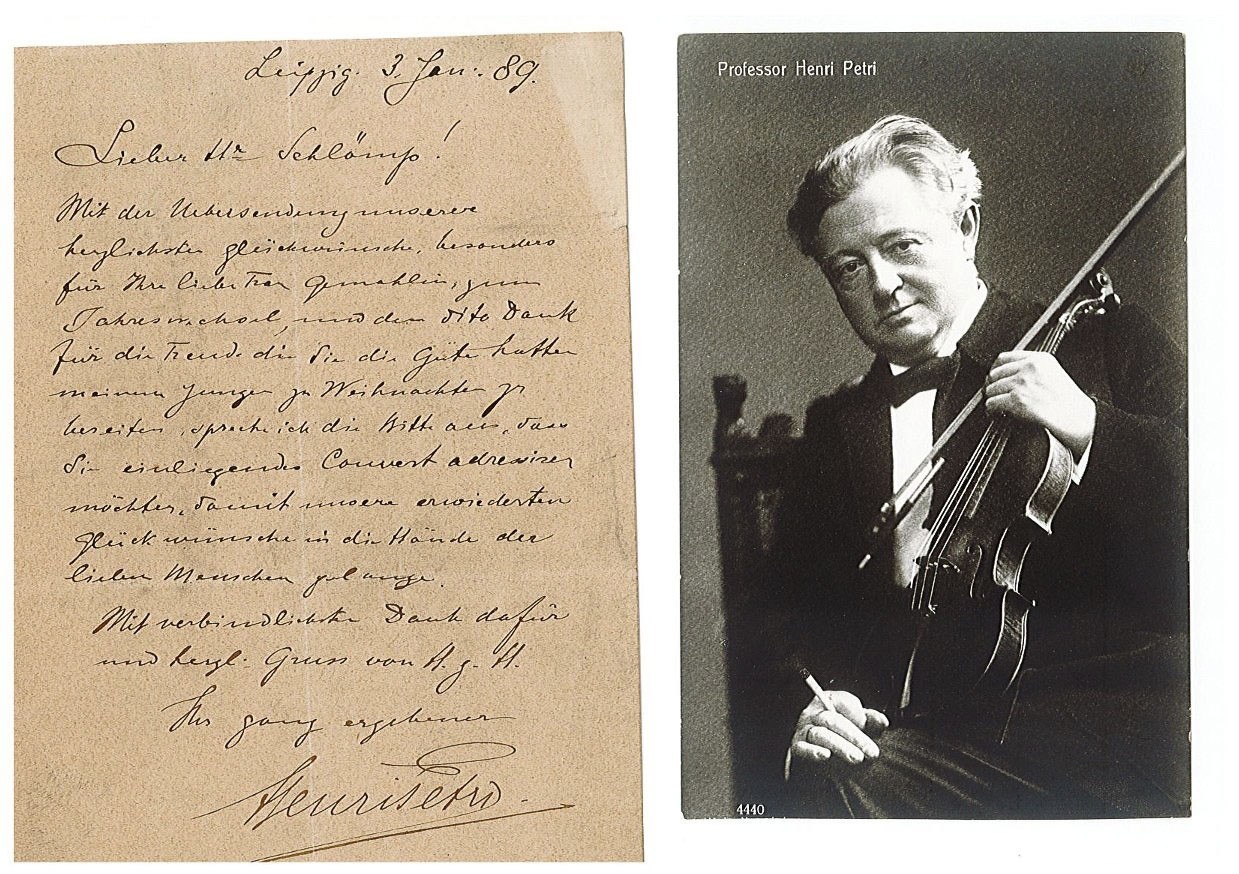 Leipzig. 3. Jan. 89.
Lieber Hr Schlömp!
Mit der Uebersendung unserer
herzlichsten glückwünsche, besonders
für Ihre liebe Frau Gemahlin, zum
Jahreswechsel, und den dito Dank
für die Freude die Sie die Güte hatten
meinem Jungen zu Weihnachten zu
bereiten, spreche ich die Bitte aus, dass
Sie einliegendes Couvert adressiren
möchten, damit unsere erwiederten
glückwünsche in die Hände der
lieben Menschen gelange.
Mit verbindlichsten Dank dafür
und herzl. Gruss von H. z. H.
Ihr ganz ergebener
Henri Petri.
Professor Henri Petri
4440